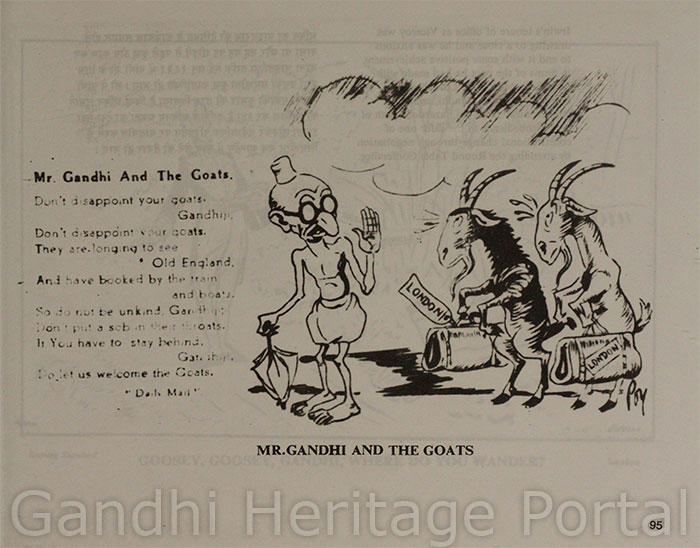 Mr. Gandhi And The Goats.
Don't disappoint your goats,
Gandhiji,
Don't disappoint your goats.
They are longing to see
Old England,
And have booked by the train
and boats.
So do not be unkind, Gandhiji
Don't put a sob in their throats.
If You have to stay behind,
Gandhiji,
Do let us welcome the Goats.
"Daily Mail"
LONDON
LONDON
Poy
MR.GANDHI AND THE GOATS
GOOSEY, GOOSEY, GANDHI, WHERE DO YOU WANDER?
Gandhi Heritage Portal
95